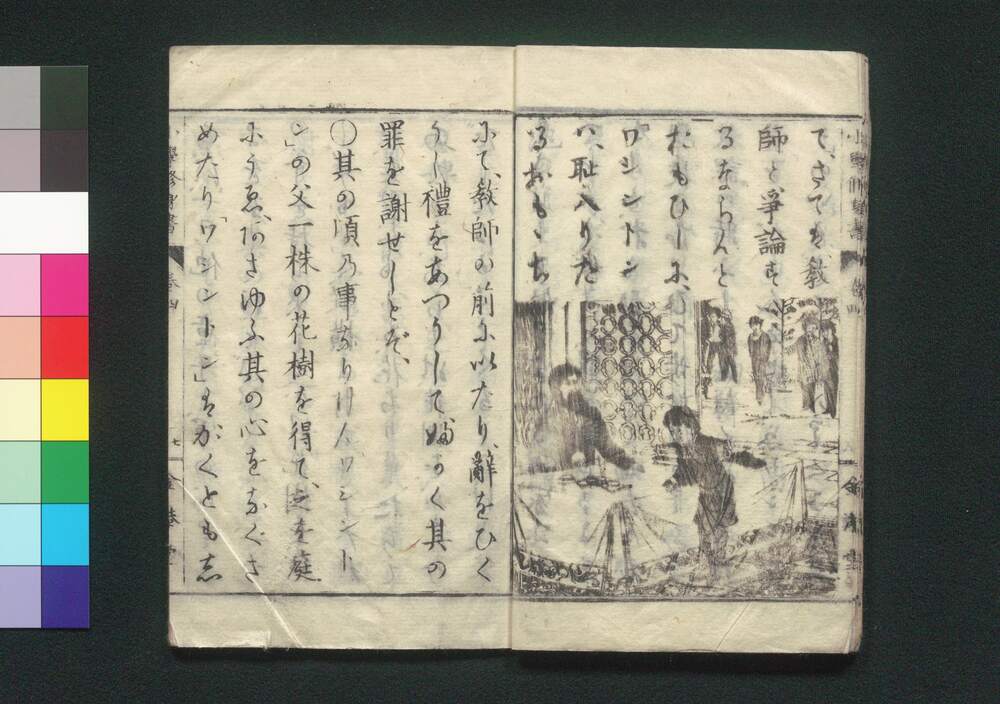 て、さてハ教
師と爭論す
るならんと
おもひしに、
ワシントン
ハ、耻入りた
るおもゝち
にて、教師の前に以たり、辭をひく
うし禮をあつうして、姉く其の
罪を謝せしとぞ、
其の頃乃事なりけん「ワシント
ン」の父一株の花樹を得て、之を庭
にうゑ、あさゆふ其の心をなぐさ
めたり「ワシントン」はかくとも志
小學修身書